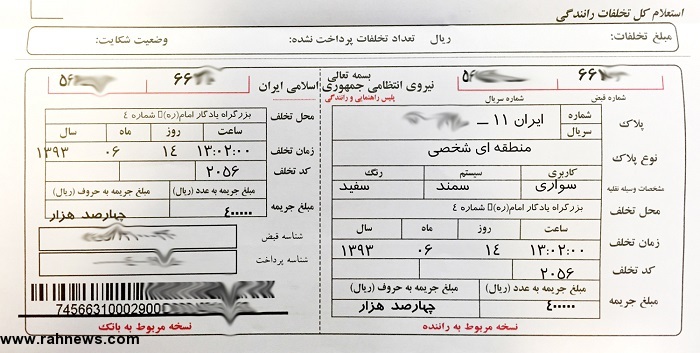 استعلام کل تخلفات رانندگی
مبلغ تخلفات: ریال تعداد تخلفات پرداخت نشده: وضعیت شکایت:
بسمه تعالی
نیروی انتظامی جمهوری اسلامی ایران
پلیس راهنمایی و رانندگی
۶۶
شماره قبض
۵۶
شماره سریال
پلاک
شماره
سریال
ایران ۱۱ ـ
نوع پلاک
منطقه ای شخصی
مشخصات وسیله نقلیه
کاربری سیستم رنگ
سواری سمند سفید
محل تخلف
بزرگراه یادگار امام(ره)▯ شماره ٤
زمان تخلف
ساعت روز ماه سال
۱۳:۰۲:۰۰ ۱۴ ۰۶ ۱۳۹۳
کد تخلف
۲۰۵۶
مبلغ جریمه
مبلغ جریمه به عدد (ریال) مبلغ جریمه به حروف (ریال)
۴۰۰۰۰۰ چهارصد هزار
نسخه مربوط به راننده
۶۶
۵۶
محل تخلف
بزرگراه یادگار امام(ره)▯ شماره ٤
زمان تخلف
ساعت روز ماه سال
۱۳:۰۲:۰۰ ۱۴ ۰۶ ۱۳۹۳
کد تخلف
۲۰۵۶
مبلغ جریمه
مبلغ جریمه به عدد (ریال) مبلغ جریمه به حروف (ریال)
۴۰۰۰۰۰ چهارصد هزار
شناسه قبض
شناسه پرداخت
74566310002900
نسخه مربوط به بانک
www.rahnews.com